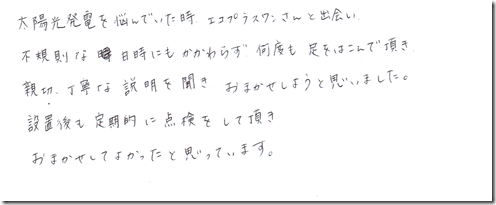 太陽光発電を悩んでいた時 エコプラスワンさんと出会い
不規則な日時にもかかわらず 何度も 足をはこんで頂き
親切、丁寧な 説明を聞き おまかせしようと思いました。
設置後も定期的に点検をして頂き
おまかせしてよかったと思っています。